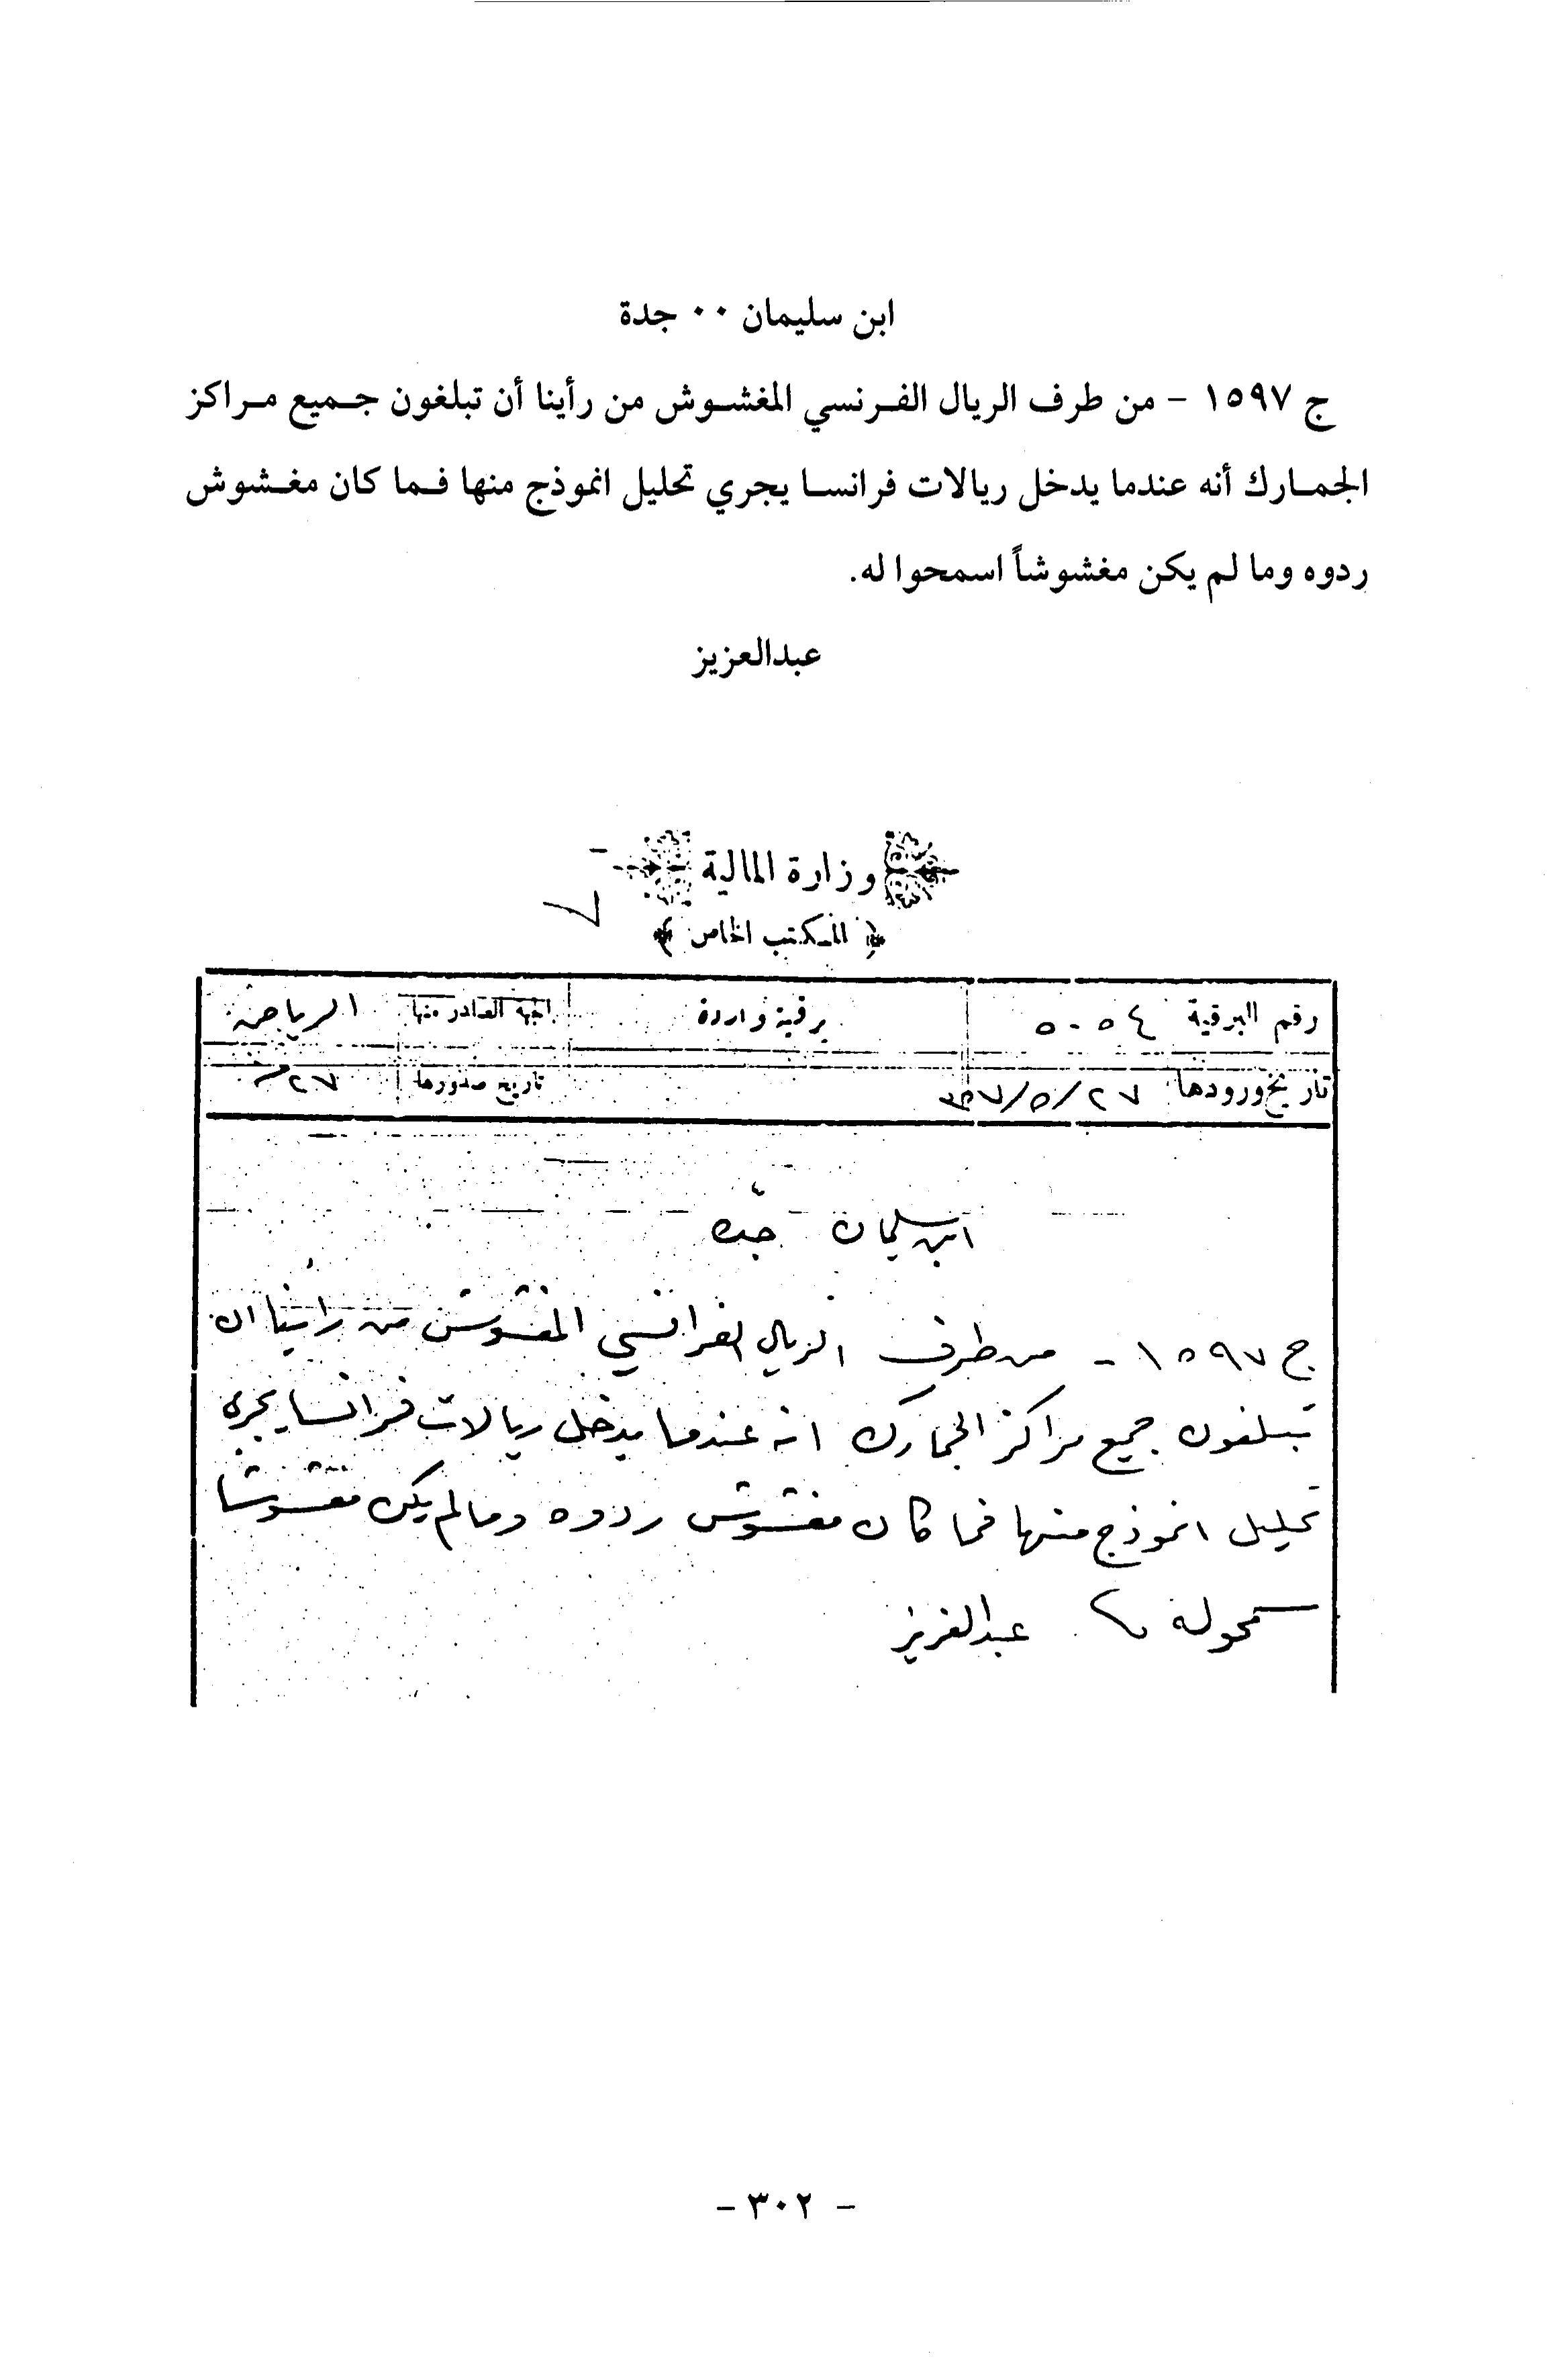 ابن سليمان ٠٠ جدة
ج ١٥٩٧ - من طرف الريال الفرنسي المغشوش من رأينا أن تبلغون جميع مراكز
الجمارك أنه عندما يدخل ريالات فرانسا يجري تحليل انموذج منها فما كان مغشوش
ردوه وما لم يكن مغشوشاً اسمحوا له.
عبدالعزيز
وزارة المالية
﴿ المكتب الخاص ﴾
رقم البرقية ٥٠٥٤ برقية واردة الجهة الصادر منها الرياض
تاريخ ورودها ٢٧/٥/٣٥٧ تاريخ صدورها ٢٧
ابن سليمان جده
ج ١٥٩٧ - من طرف الريال الفرانسي المغشوش من رأينا ان
تبلغون جميع مراكز الجمارك انه عندما يدخل ريالات فرانسا يجرى
تحليل انموذج منها فما كان مغشوش ردوه وما لم يكن مغشوشا
سمحوله عبدالعزيز
- ٣٠٢ -